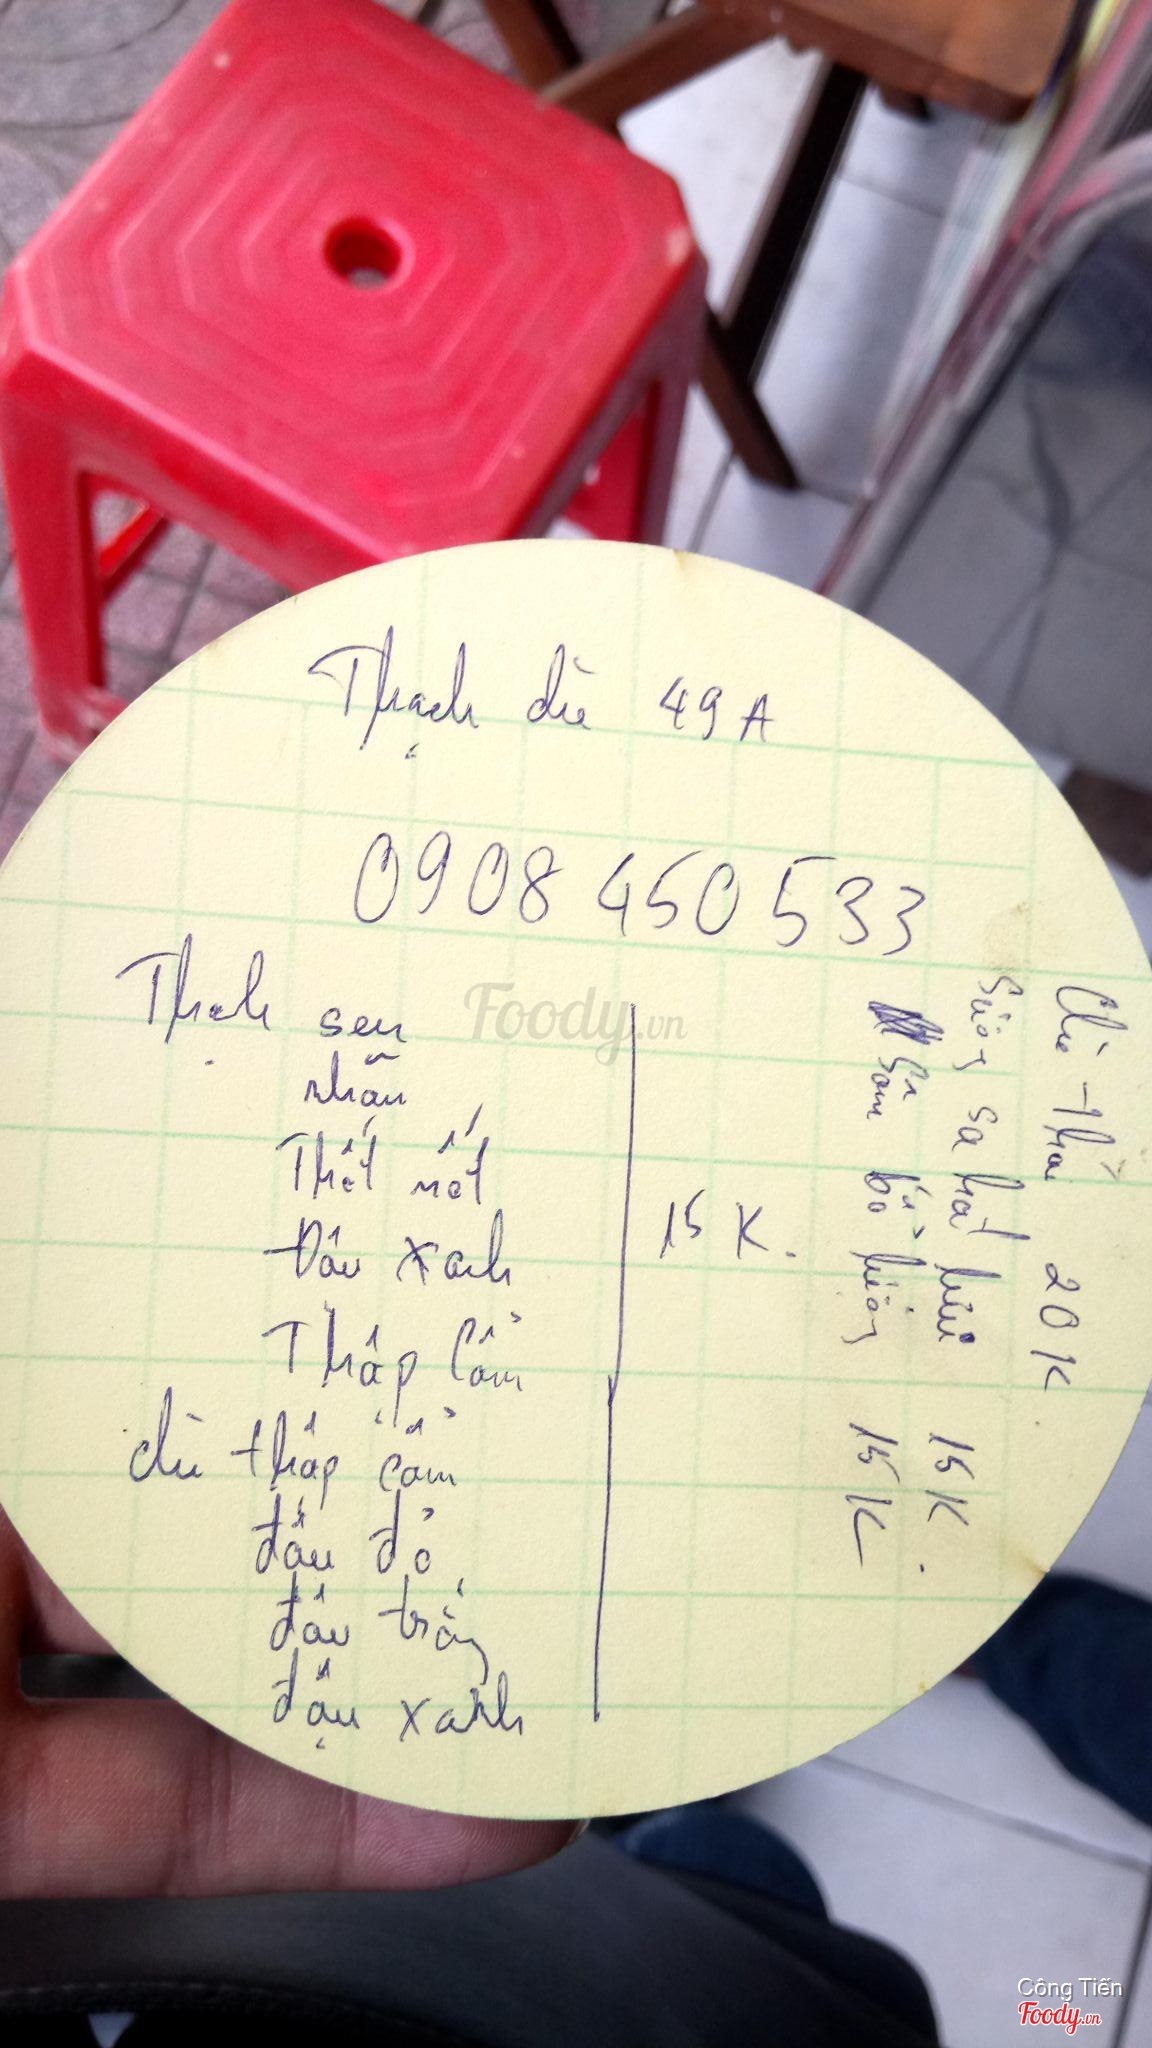 Thạch chè 49A
0908 450 533
Thạch sen
nhãn
Thốt nốt
Đâu xanh
Thập Cẩm
chè thập cẩm
đâu đỏ
đâu trắng
đậu xanh
15 K.
Chè Thái 20 K.
Sương sa hạt lựu 15 K.
Sâm bổ lượng 15 K
Foody.vn
Công Tiến
Foody.vn